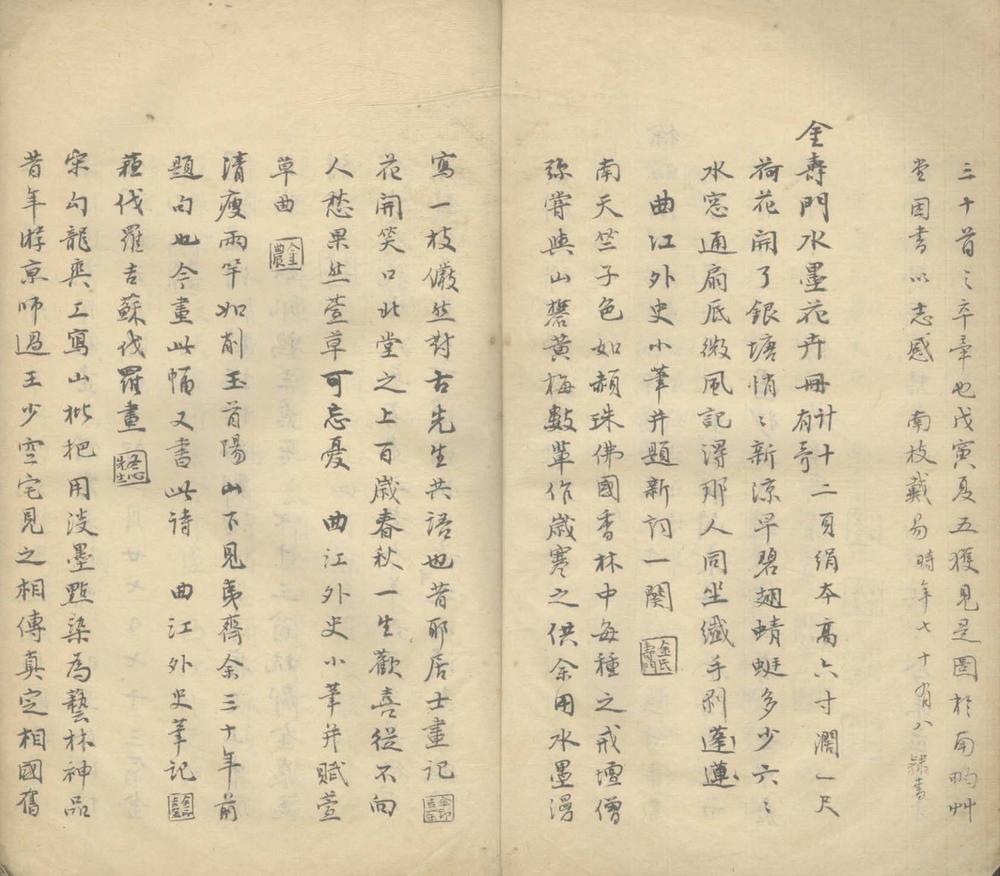 三十首之卒章也戊寅夏五獲見是圖於南畇艸
堂因書以志感 南枝戴易時年七十有八 隸書
金壽門水墨花卉冊 計十二頁絹本高六寸濶一尺 有奇
荷花開了銀塘悄悄新涼早碧翅蜻蜓多少六六
水窓通扇底微風記得那人同坐纖手剥蓮蓮
曲江外史小筆并題新詞一闋 金氏壽門
南天竺子色如赬珠佛國香林中每種之戒壇僧
弥嘗與山礬黃梅數輩作歲寒之供余用水墨漫
寫一枝儼然對古先生共語也昔耶居士畫記 金印吉金
花開笑口北堂之上百歲春秋一生歡喜從不向
人愁果然萱草可忘憂 曲江外史小筆并賦萱
草曲 金農
清瘦兩竿如削玉首陽山下見夷齊余三十年前
題句也今畫此幅又書此詩 曲江外史筆記
蘓伐羅吉蘇伐羅畫 冬心先生
宋勾龍爽工寫山枇杷用淡墨點染為藝林神品
昔年游京師過王少空宅見之相傳真定相國舊